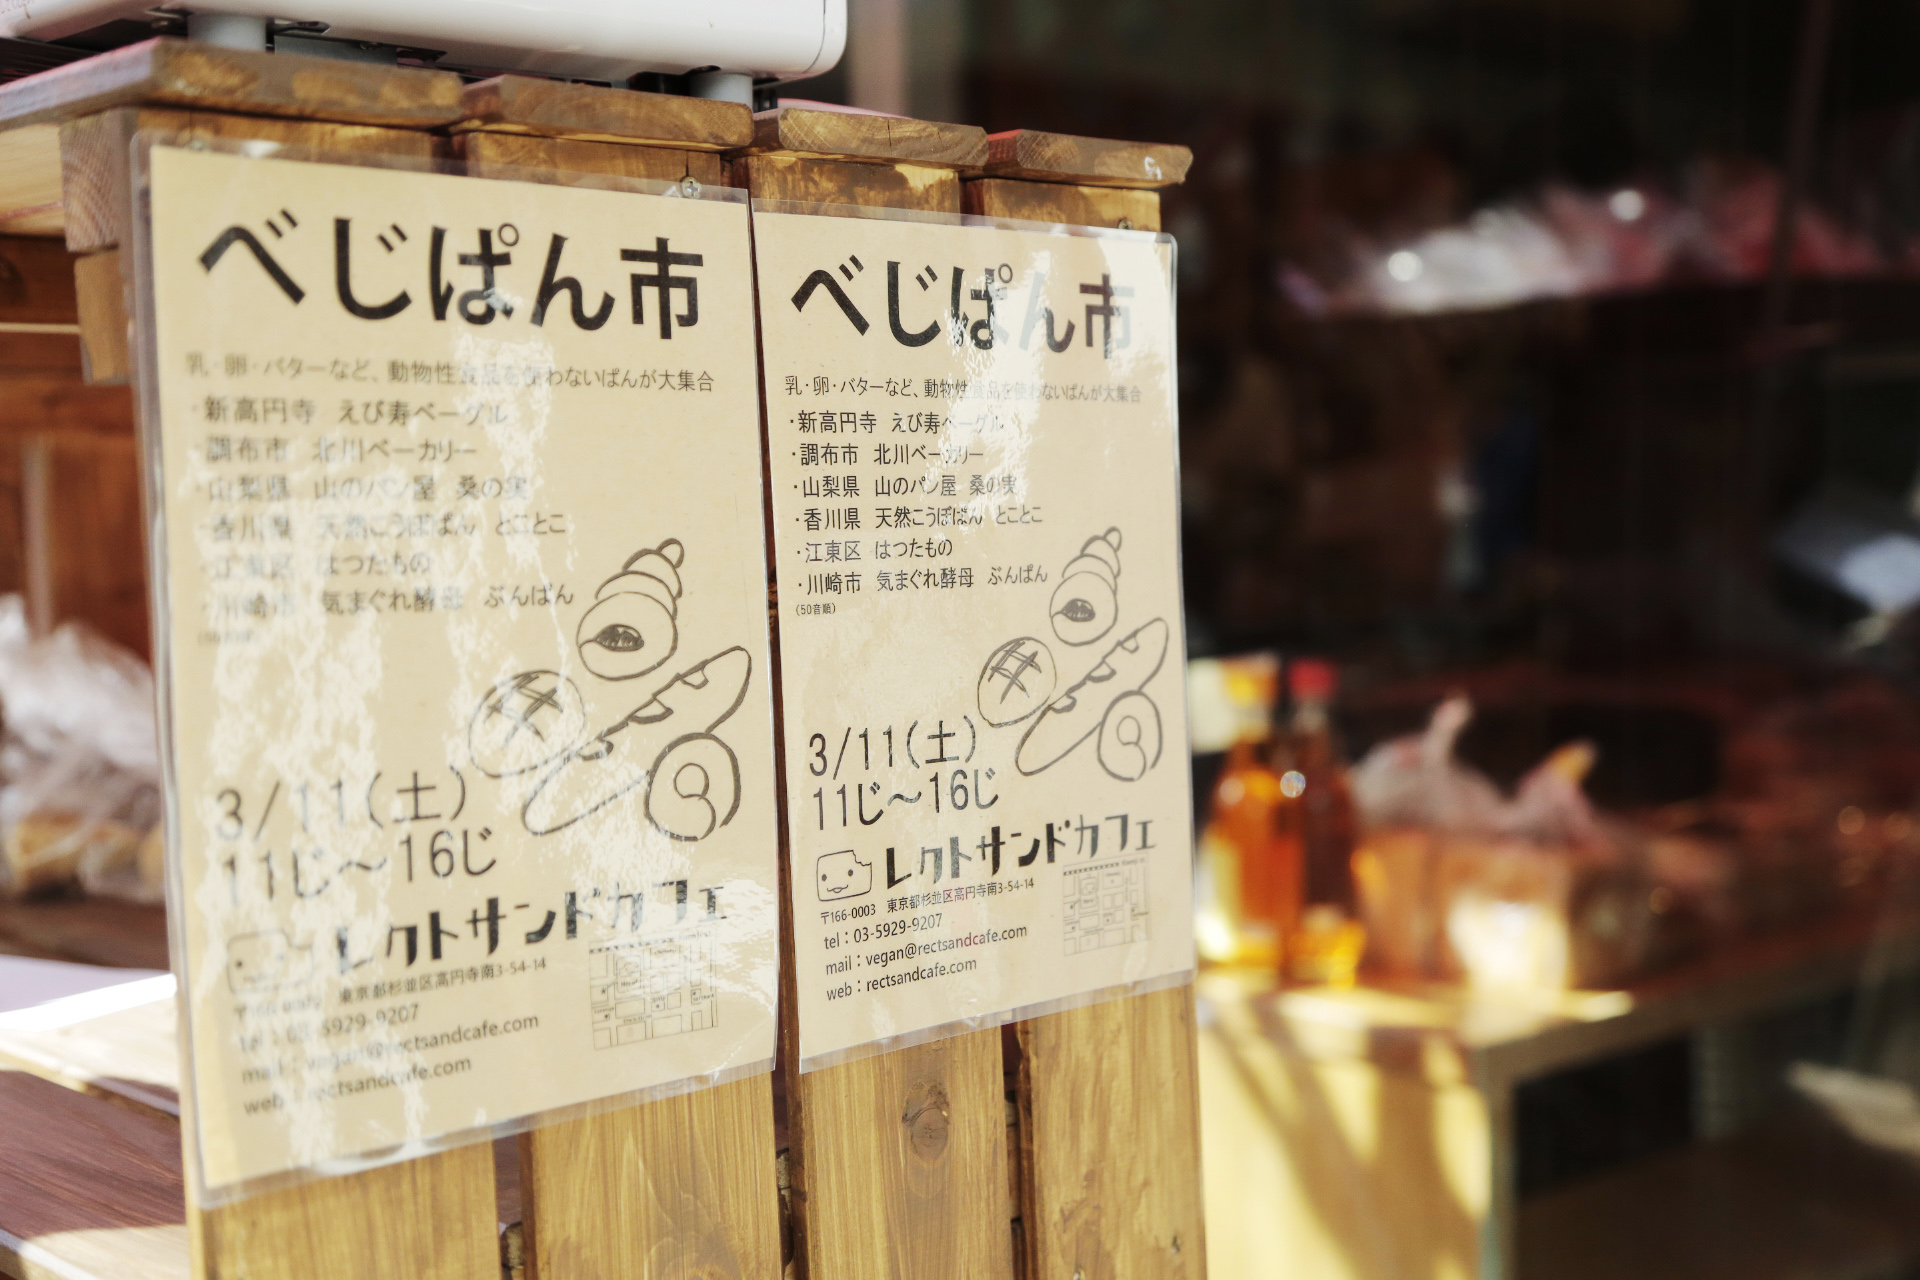 べじぱん市
乳・卵・バターなど、動物性食品を使わないぱんが大集合
・新高円寺 えび寿ベーグル
・調布市 北川ベーカリー
・山梨県 山のパン屋 桑の実
・香川県 天然こうぼぱん とことこ
・江東区 はつたもの
・川崎市 気まぐれ酵母 ぶんぱん
3/11(土)
11じ～16じ
レクトサンドカフェ
東京都杉並区高円寺南3-54-14
tel：03-5929-9207
mail：vegan@rectsandcafe.com
web：rectsandcafe.com
べじぱん市
乳・卵・バターなど、動物性食品を使わないぱんが大集合
・新高円寺 えび寿ベーグル
・調布市 北川ベーカリー
・山梨県 山のパン屋 桑の実
・香川県 天然こうぼぱん とことこ
・江東区 はつたもの
・川崎市 気まぐれ酵母 ぶんぱん
(50音順)
3/11(土)
11じ～16じ
レクトサンドカフェ
〒166-0003 東京都杉並区高円寺南3-54-14
tel：03-5929-9207
mail：vegan@rectsandcafe.com
web：rectsandcafe.com